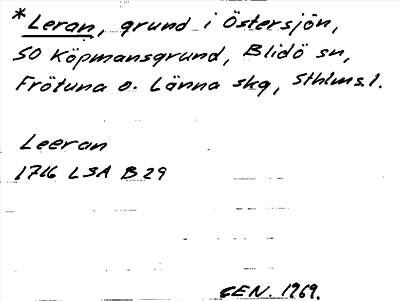 *Leran, grund i Östersjön,
SO Köpmansgrund, Blidö sn,
Frötuna o. Länna skg, Sthlms. l.
Leeran
1716 LSA B 29
GEN. 1969.